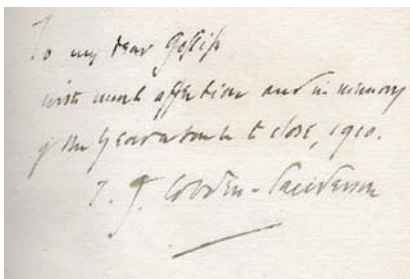 To my dear Gossip
with much affection and in memory
of the Year about to close, 1910.
T. J. Cobden-Sanderson